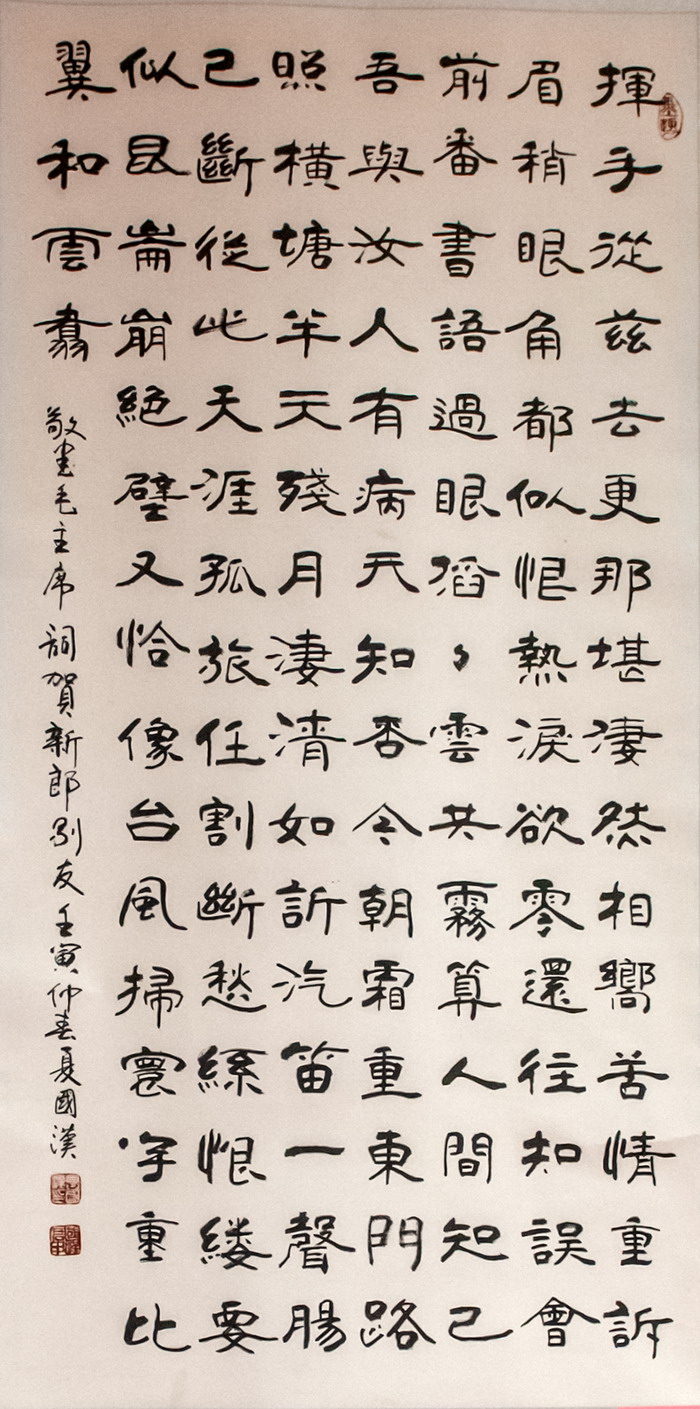 揮手從茲去更那堪淒然相嚮苦情重訴
眉稍眼角都似恨熱淚欲零還往知誤會
前番書語過眼滔〻雲共霧算人間知己
吾與汝人有病天知否今朝霜重東門路
照橫塘半天殘月淒清如訢汽笛一聲腸
已斷從此天涯孤旅任割斷愁絲恨縷要
似昆崙崩絕壁又恰像台風掃寰宇重比
翼和雲翥
敬書毛主席詞賀新郎別友壬寅仲春夏國漢